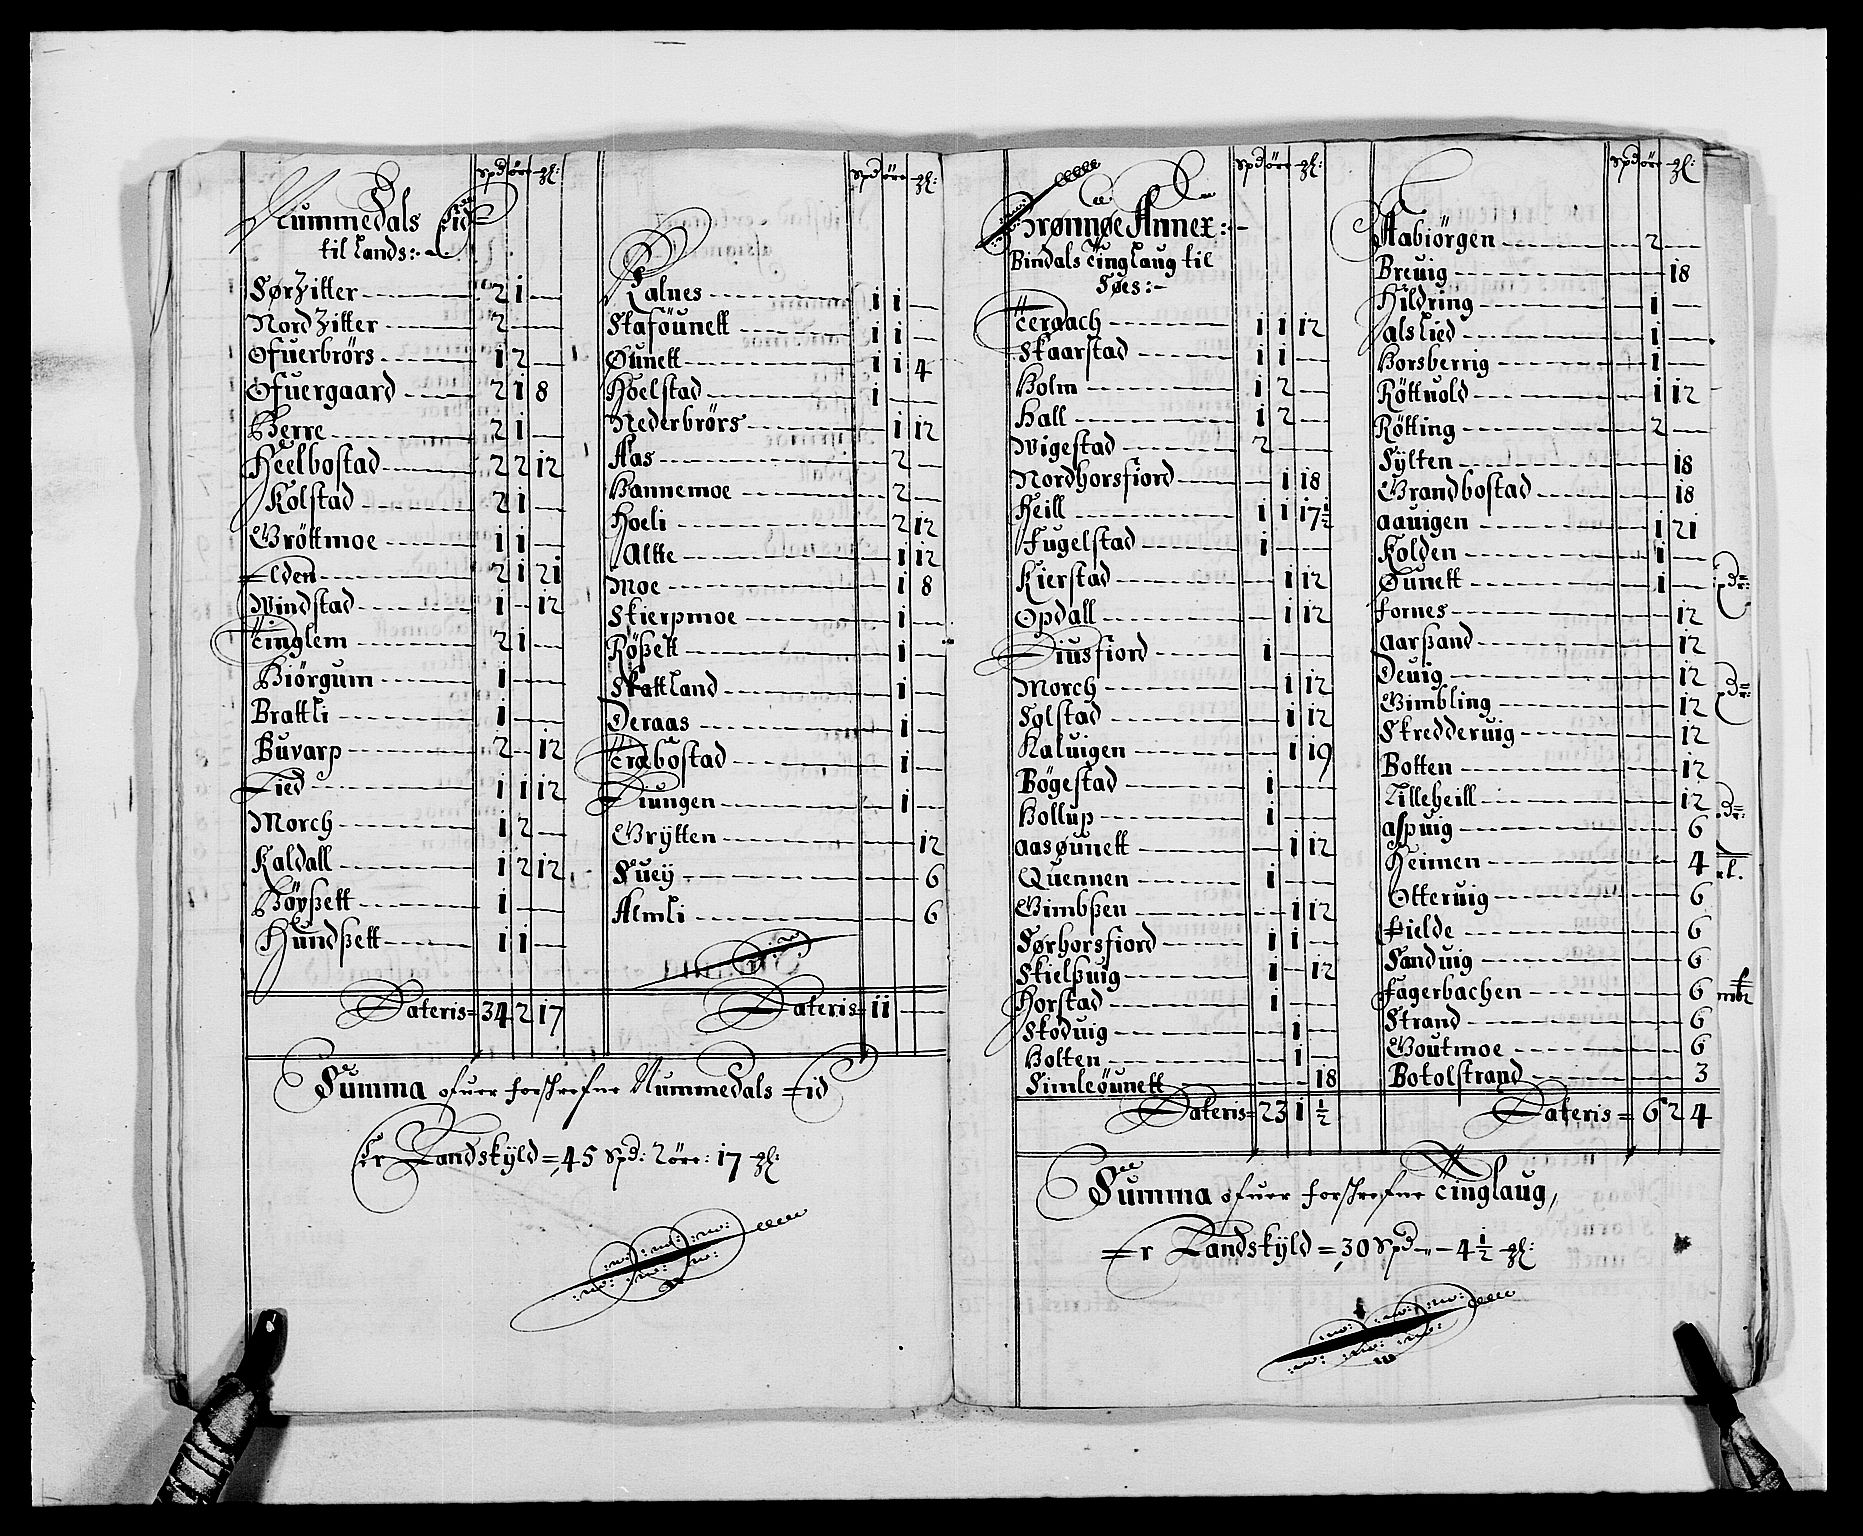 Spd øre ɱl:
Nummedals Eid
til Lands:
Sørzitter 2 1 —
Nordzitter 2 — —
Ofuerbrørs 1 2 —
Ofuergaard 2 1 8
Berre 2 1 —
Heelbostad 2 2 12
Kolstad 2 1 —
Grøttmoe 1 1 —
Elden 2 1 21
Windstad 1 — 12
Tinglem 2 1 —
Biörgum 1 — —
Brattli 1 — —
Buvarp 2 — 12
Lied 1 1 12
Morch 1 2 —
Kaldall 1 2 12
Böyßett 1 — —
Hundßett 1 1 —
Lateris = 34 2 17
Spd øre
Kalnes 1 1 —
Staföunett 1 1 —
Öunett 1 1 4
Hoelstad 1 — —
Nederbrörs 1 12
Aas 2 —
Hannemoe 2 —
Hoeli 2 12
Altte 1 12
Moe 1 8
Skierpmoe 1 —
Rößett 1 —
Skattland 1 —
Deraas 1 —
Træbostad 1 —
Liungen 1 —
Grÿtten 12
Suey 6
Aemli 6
Lateris = 11 — —
Summa ofuer forschrefne Nummedals Eid
Er Landskÿld = 45 Spd: 2 öre: 17
Spd øre
Brønnøe Annex:
Bindals Tinglaug til
Søes:
Teraach 1 1 12
Skaarstad 1 1 —
Holm 1 2 —
Hall 1 2 —
Wigestad 2 — —
Nordhorsfiord 1 18
Heill 1 1 17½
Fugelstad 1 — —
Kierstad 1 12
Opdall 1 12
Diusfiord 1 — —
Morch 1 12
Sylstad 1 12
Kaluigen 1 19
Bögestad 1 — —
Hollup 1 — —
aasøunett 1 12
Quennen 1 — —
Gimbßen 1 12
Sørhorsfiord 1 1 —
Skielßuig 1 — 12
Horstad 1 — —
Skoduig 1 —
Holten 1 —
Simleöunett 18
Lateris = 23 1 ½
Spd øre
Aabiörgen 2 —
Breuig 18
Hildring 1 —
alslied 1 —
Horsberrig 1 —
Röttuold 1 12
Rötting 2 —
Sylten 18
Grandbostad 18
aauigen 1 21
Kolden 1 —
Öunett 1 —
fornes 12
aarßand 12
Deuig 12
Gimbling 12
Skredderuig 12
Botten 12
Lilleheill 12
aspuig 6
Heimen 4
Otteruig 6
Fielde 6
Sanduig 6
fagerbachen 6
Strand 6
Goutmoe 6
Botolstrand 3
Lateris = 6 2 4
Summa ofuer forschrefne Tinglaug,
Er Landskÿld = 30 Spd — 4½